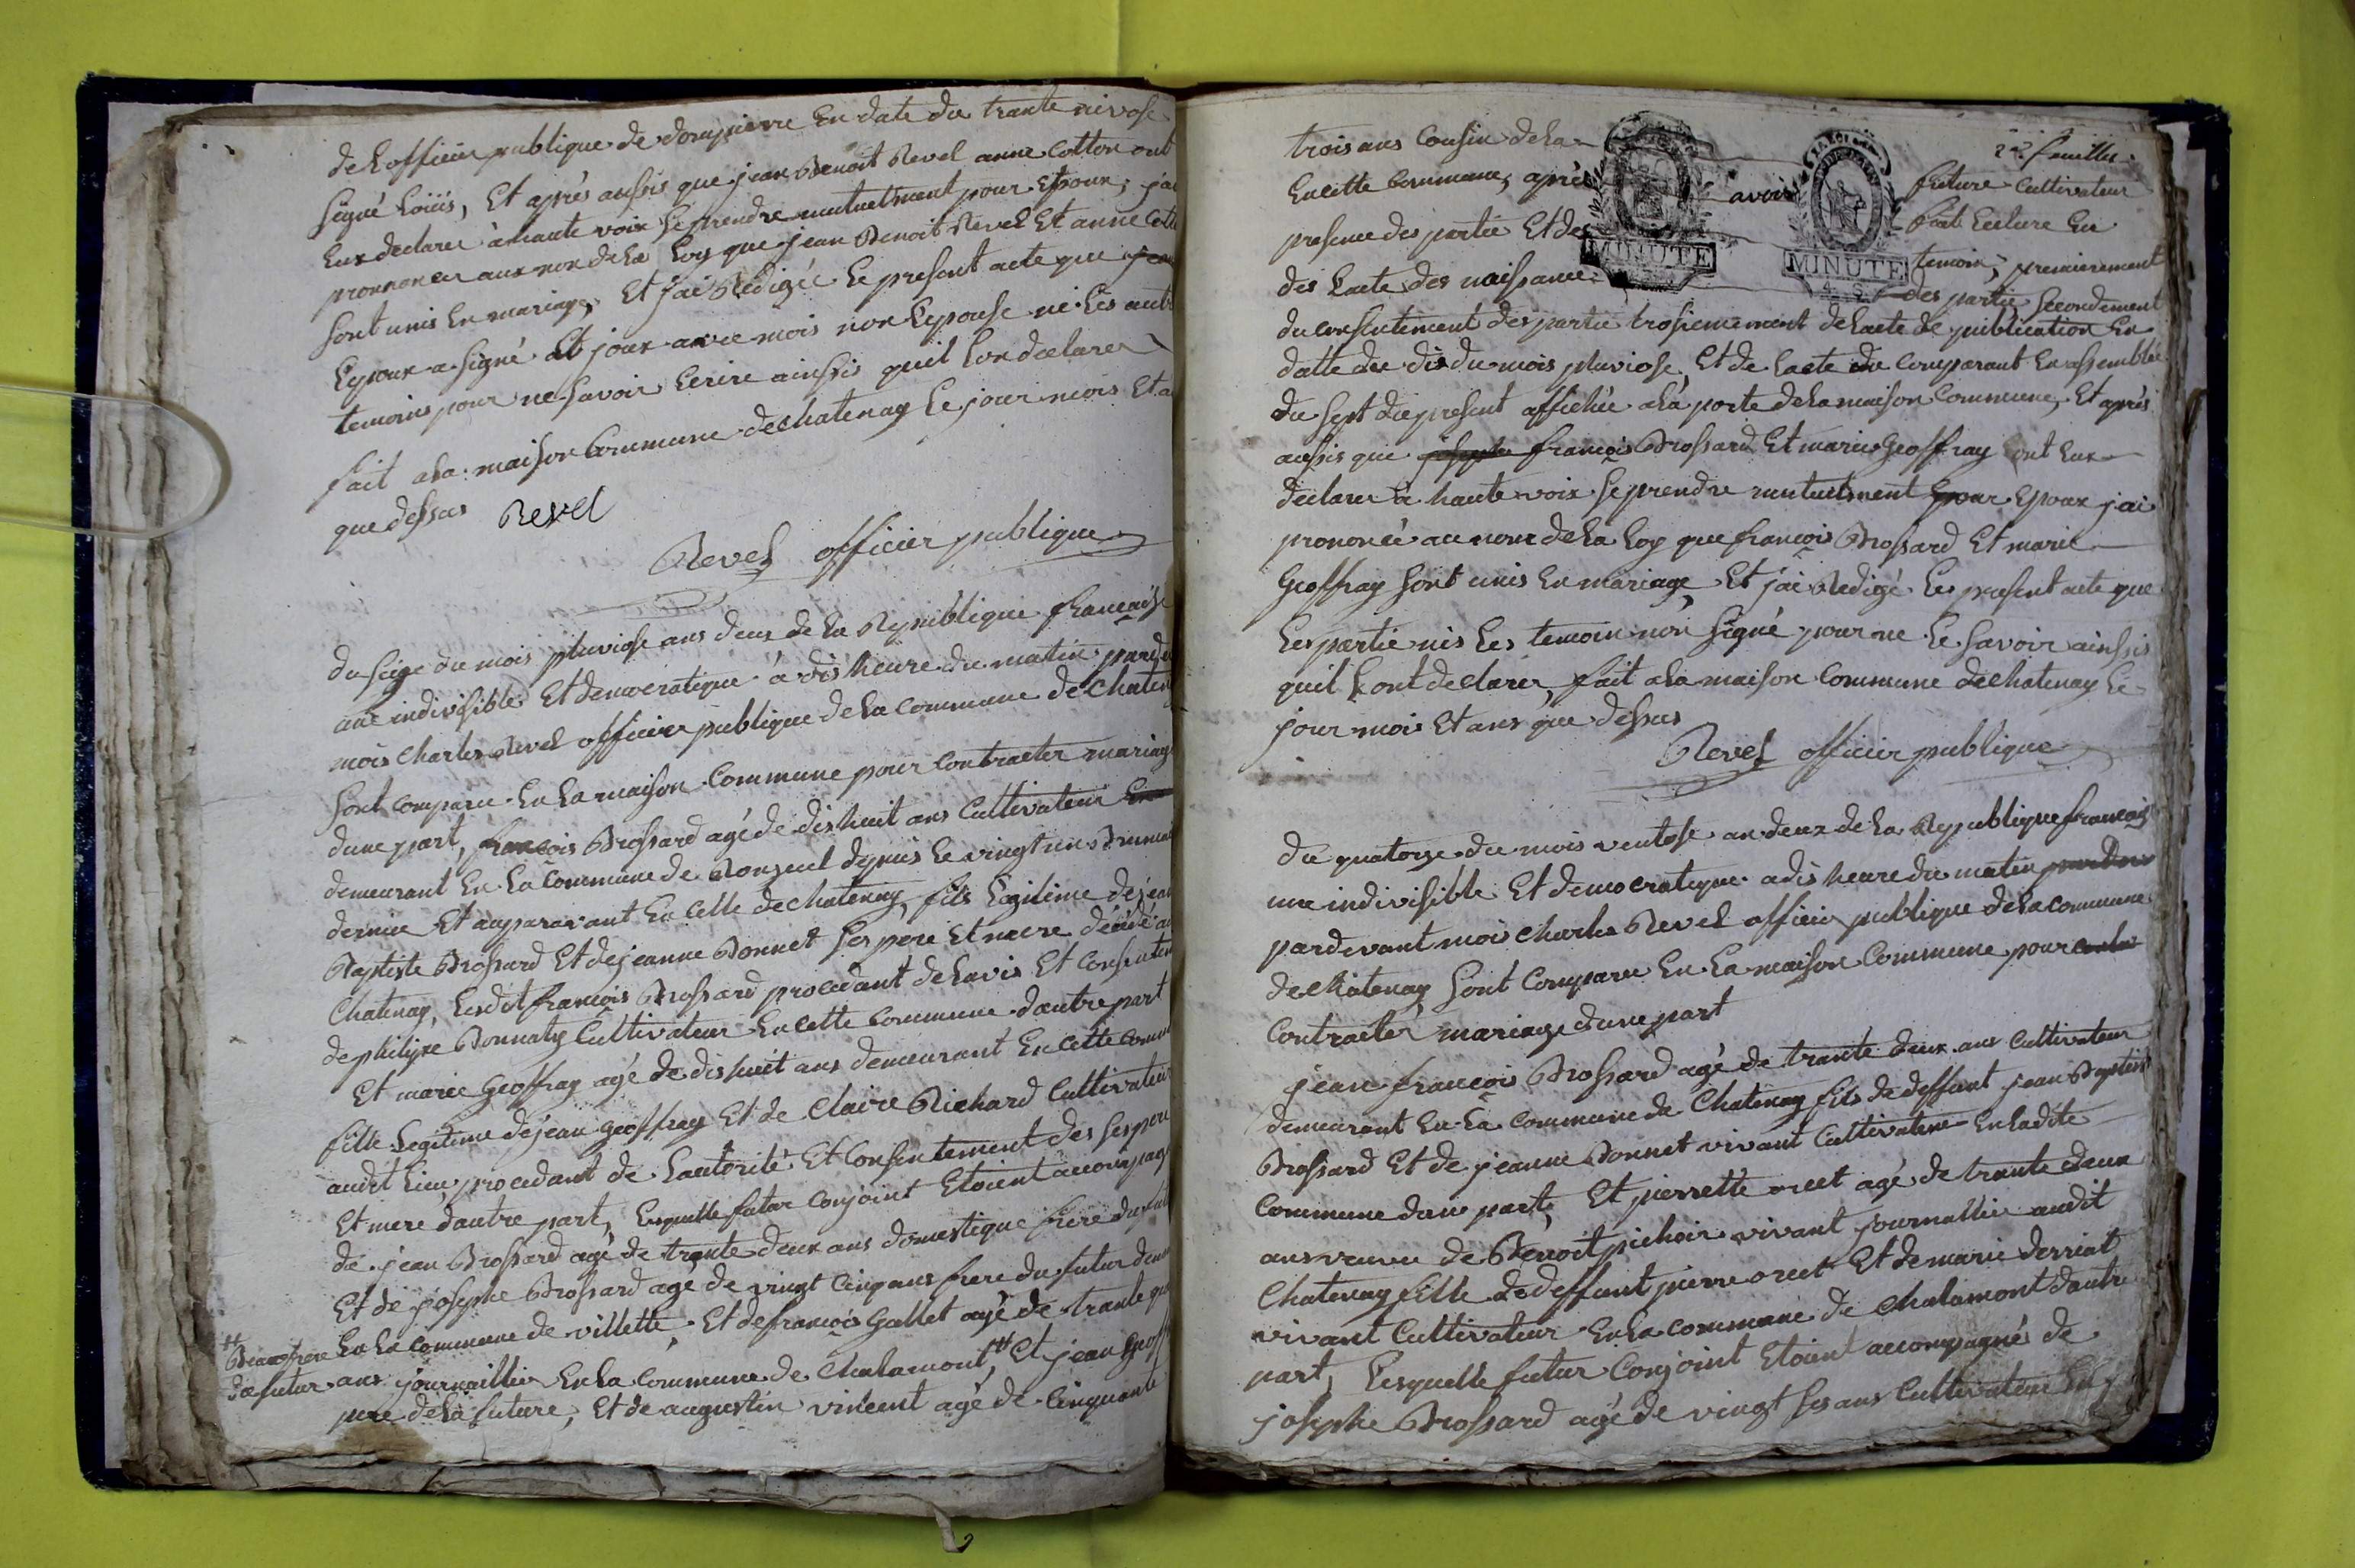 de Lofficier publique de dompierre En date du trante nivose
signé Loüis, Et après aussis que jean Benoit Revel anne Cotton ont
Eux declarer àhaute voix se prendre mutuelment pour Epoux, j'ai
prononcer aux nom de La Loy que jean Benoit Revel Et anne Cott
sont unis En mariage, Et j'ai Redigée Le present acte que
Lepoux a signé Et jour avce mois non Lepouse ni Les aut
temoins pour ne savoir Ecrire ainssis quil Lon declarer
fait ala maison Commune de chatenay Le jour mois Et a
que dessus Revel
Revel officier publique
du seize du mois pluviose ans deux de La Republique francaise
une indivisible Et democratique à dis heure du matin pard
mois Charles Revel officier publique de La Commune de Chaten
sont comparu En La maison Commune pour Contracter mariage
dune part, francois Brossard agé de dishuit ans Cultivateur
demeurant En La Commune de Ronzuel depuis Le vingt un Brumai
dernier Et auparavant En Celle de chatenay, fils Legitime de jean
Baptiste Brossard Et de jeanne Bonnet ses pere Et mere décédé au
Chatenay, Ledit francois Brossard procedant de Lavis Et Consentem
de philipe Bonnaty Cultivateur En cette Commune dautre part
Et marie Geoffray agé de dishuit ans demeurant En Cette Comm
fille Legitime de jean Geoffray Et de Claire Richard Cultivateur
audit Lieu procedant de Lautorité Et Consentement des ses pere
Et mere dautre part, Lesquelle futur Conjoint Etoient accompag
de jean Brossard agé de trante deux ans domestique frere du fut
Et de josephe Brossard age de vingt Cinq ans frere du futur dem
En La Commune de villette, Et de francois Gallet agé de trante qu
Beaufrere
du futur
ans journaillier En La Commune de Chalamont, Et jean Geoff
pere de La future, Et de augustin vincent agé de Cinquante
2me feuillet
trois ans Cousin de La future Cultivateur
En Cette Commune, après avoir fait Lecture En
presence des partie Et des temoin, premierement
des Lacte des naissance des partie, secondement
MINUTE
MINUTE
du consentement des partie trosiemement de Lacte de publication En
datte du dis du mois pluviose, Et de Lacte du Comparant En assemblée
du sept du present affichée ala porte de La maison Commune, Et après
aussis que josephe francois Brossard Et marie Geoffray ont Eux
declarer à haute voix se prendre mutuelment pour Epoux j'ai
prononcé au nom de La Loy que francois Brossard Et marie
Geoffray sont unis En mariage, Et j'ai Redigé Le present acte que
Les partie nis Les temoin non signé pour ne Le savoir ainssis
quil Lont declarer, fait ala maison Commune de chatenay Le
jour mois Et ans que dessus
Revel officier publique
du quatorze du mois ventose an deux de La Republique francais
une indivisible Et democratique adis heure du matin
pardevant mois Charles Revel officier publique de La commune
de chatenay sont Comparu En La maison Commune pour
Contracter mariage dune part
jean francois Brossard agé de trante deux ans Cultivateur
demeurant En La Commune de Chatenay fils de deffunt jean Baptiste
Brossard Et de jeanne Bonnet vivant Cultivateur En Ladite
Commune dune parte, Et pierrette orcet agé de trante deux
ans veuve de Benoit pichoir vivant journallier audit
Chatenay fille de deffunt pierre orcet Et de marie derriat
vivant Cultivateur En La commune de Chalamont dautre
part, Lesquelle futur Conjoint Etoient accompagnés de
josephe Brossard agé de vingt ses ans Cultivateur En